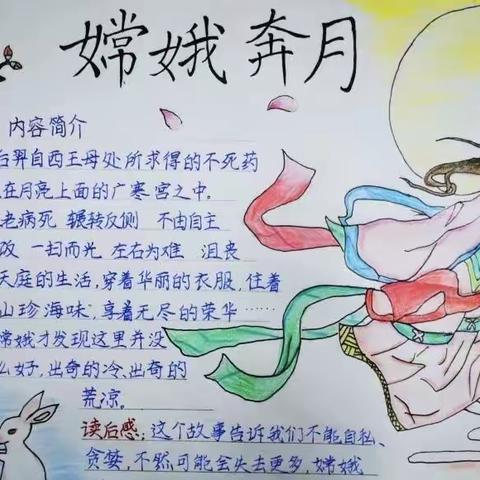 嫦娥奔月
内容简介
后羿自西王母处所求得的不死药
在月亮上面的广寒宫之中。
老病死 辗转反侧 不由自主
一扫而光 左右为难 沮丧
天庭的生活,穿着华丽的衣服,住着
山珍海味,享着无尽的荣华……
嫦娥才发现这里并没
么好,出奇的冷、出奇的
荒凉。
读后感:这个故事告诉我们不能自私、
贪婪,不然可能会失去更多,嫦娥